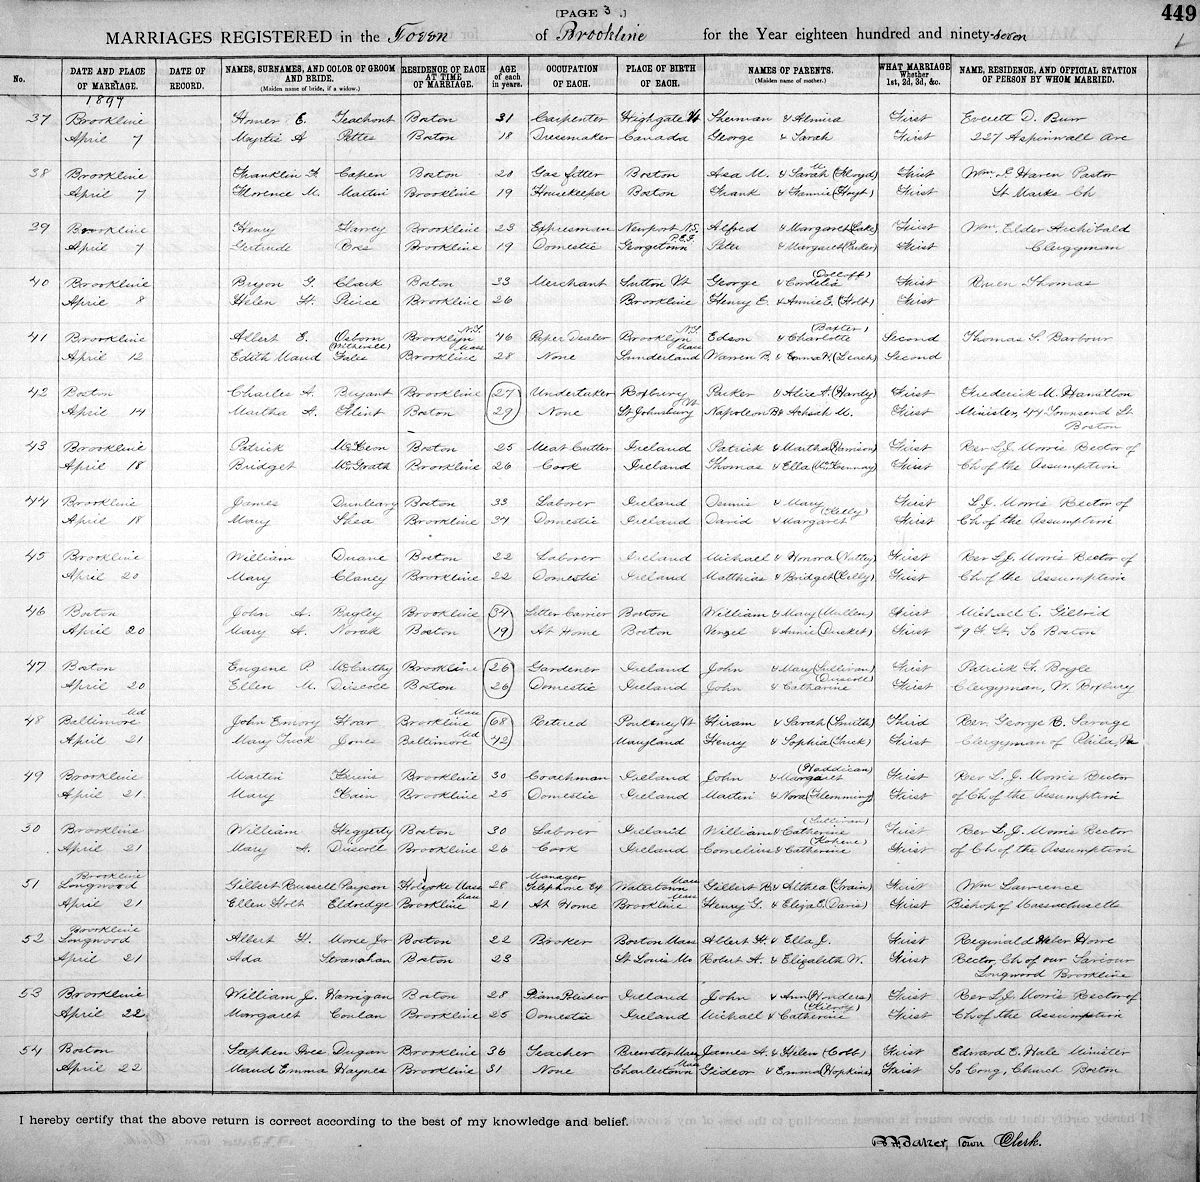 [PAGE 3.]
449
MARRIAGES REGISTERED in the Town of Brookline for the Year eighteen hundred and ninety-seven
No. DATE AND PLACE OF MARRIAGE. DATE OF RECORD. NAMES, SURNAMES, AND COLOR OF GROOM AND BRIDE. (Maiden name of bride, if a widow.) RESIDENCE OF EACH AT TIME OF MARRIAGE. AGE of each in years. OCCUPATION OF EACH. PLACE OF BIRTH OF EACH. NAMES OF PARENTS. (Maiden name of mother.) WHAT MARRIAGE Whether 1st, 2d, 3d, &c. NAME, RESIDENCE, AND OFFICIAL STATION OF PERSON BY WHOM MARRIED.
1897
37 Brookline Homer E. Teachont Boston 31 Carpenter Highgate Vt Sherman & Almira First Everett D. Burr
April 7 Myrtis A Pettes Boston 18 Dressmaker Canada George & Sarah First 227 Aspinwall Ave
38 Brookline Franklin F. Capen Boston 20 Gas fitter Boston Asa M. & Sarah M (Floyd) First Wm. F Haven Pastor
April 7 Florence M. Martin Brookline 19 Housekeeper Boston Frank & Fannie (Hoyt) First St Marks Ch
39 Brookline Henry Harvey Brookline 23 Expressman Newport N.S. Alfred & Margaret (Lake) First Wm. Elder Archibald
April 7 Gertrude Brookline 19 Domestic Georgetown P.E.I. Peter & Margaret (Parker) First Clergyman
40 Brookline Bryon G. Clark Boston 33 Merchant Sutton Vt George & Cordelia (Dolloff) First Reuen Thomas
April 8 Helen H. Peirce Brookline 26 Brookline Henry E. & Annie E. (Holt) First
41 Brookline Albert E. Osborn Brooklyn N.Y. 46 Paper Dealer Brooklyn N.Y. Edson & Charlotte (Baxter) Second Thomas S. Barbour
April 12 Edith Maud Fales (Witherell) Brookline Mass 28 None Sunderland Mass Warren B. & Emma W. (Leach) Second
42 Boston Charles A. Bryant Brookline 27 Undertaker Roxbury Parker & Alice A. (Hardy) First Frederick M. Hamilton
April 14 Martha A. Flint Boston 29 None St Johnsbury Vt Napoleon B & Achsah M. First Minister, 44 Townsend St
Boston
43 Brookline Patrick McKeon Boston 25 Meat Cutter Ireland Patrick & Martha (Harrison) First Rev L.J. Morris Rector of
April 18 Bridget McGrath Brookline 26 Cook Ireland Thomas & Ella First Ch of the Assumption
44 Brookline James Dunleavy Boston 33 Laborer Ireland Dennis & Mary First L.J. Morris Rector of
April 18 Mary Shea Brookline 34 Domestic Ireland David & Margaret (Kelly) First Ch of the Assumption
45 Brookline William Duane Boston 22 Laborer Ireland Michael & Honora (Nutley) First Rev L.J. Morris Rector of
April 20 Mary Clancy Brookline 22 Domestic Ireland Matthias & Bridget (Kelly) First Ch of the Assumption
46 Boston John A. Bagley Brookline 34 Letter Carrier Boston William & Mary (Mullen) First Michael C. Gilbrid
April 20 Mary A. Novak Boston 19 At Home Boston & Annie (Dusket) First St. So Boston
47 Boston Eugene P. McCarthy Brookline 26 Gardener Ireland John & Mary (Sullivan) First Patrick F. Boyle
April 20 Ellen M. Driscoll Boston 26 Domestic Ireland John & Catharine (Driscoll) First Clergyman, W. Roxbury
48 Baltimore Md John Emory Hoar Brookline Mass 68 Retired Poultney Vt Hiram & Sarah (Smith) Third Rev. George R. Savage
April 21 Mary Trick Jones Baltimore Md 42 Maryland Henry & Sophia (Trick) First Clergyman of Phila, Pa
49 Brookline Martin Kerins Brookline 30 Coachman Ireland John & Margaret (Haddican) First Rev L. J. Morris Rector
April 21 Mary Kain Brookline 25 Domestic Ireland Martin & Nora (Flemming) First of Ch of the Assumption
50 Brookline William Heggerty Boston 30 Laborer Ireland William & Catherine (Sullivan) First Rev L. J. Morris Rector
April 21 Mary A. Driscoll Brookline 26 Cook Ireland Cornelius & Catherine (Kohene) First of Ch of the Assumption
51 Brookline Longwood Gilbert Russell Payson Holyoke Mass 28 Manager Telephone Ex Watertown Mass Gilbert R. & Althea (Train) First Wm Lawrence
April 21 Ellen Holt Eldredge Brookline Mass 21 At Home Brookline Mass Henry G. & Eliza E. (Davis) First Bishop of Massachusetts
52 Brookline Longwood Albert H. Morse Jr Boston 22 Broker Boston Mass Albert H. & Ella J. First Reginald Heber Howe
April 21 Ada Stranahan Boston 23 St Louis Mo Robert A. & Elizabeth W. First Rector, Ch of our Saviour
Longwood Brookline
53 Brookline William J. Harrigan Boston 28 Piano Polisher Ireland John & Ann (Honders) First Rev L.J. Morris Rector of
April 22 Margaret Conlan Brookline 25 Domestic Ireland Michael & Catherine (Kilroy) First Ch of the Assumption
54 Boston Stephen Ives Dugan Brookline 36 Teacher Brewster Mass James A. & Helen (Cobb) First Edward E. Hale Minister
April 22 Maud Emma Haynes Brookline 31 None Charlestown Mass Gideon & Emma (Hopkins) First So Cong. Church Boston
I hereby certify that the above return is correct according to the best of my knowledge and belief.
Baker, Town Clerk.